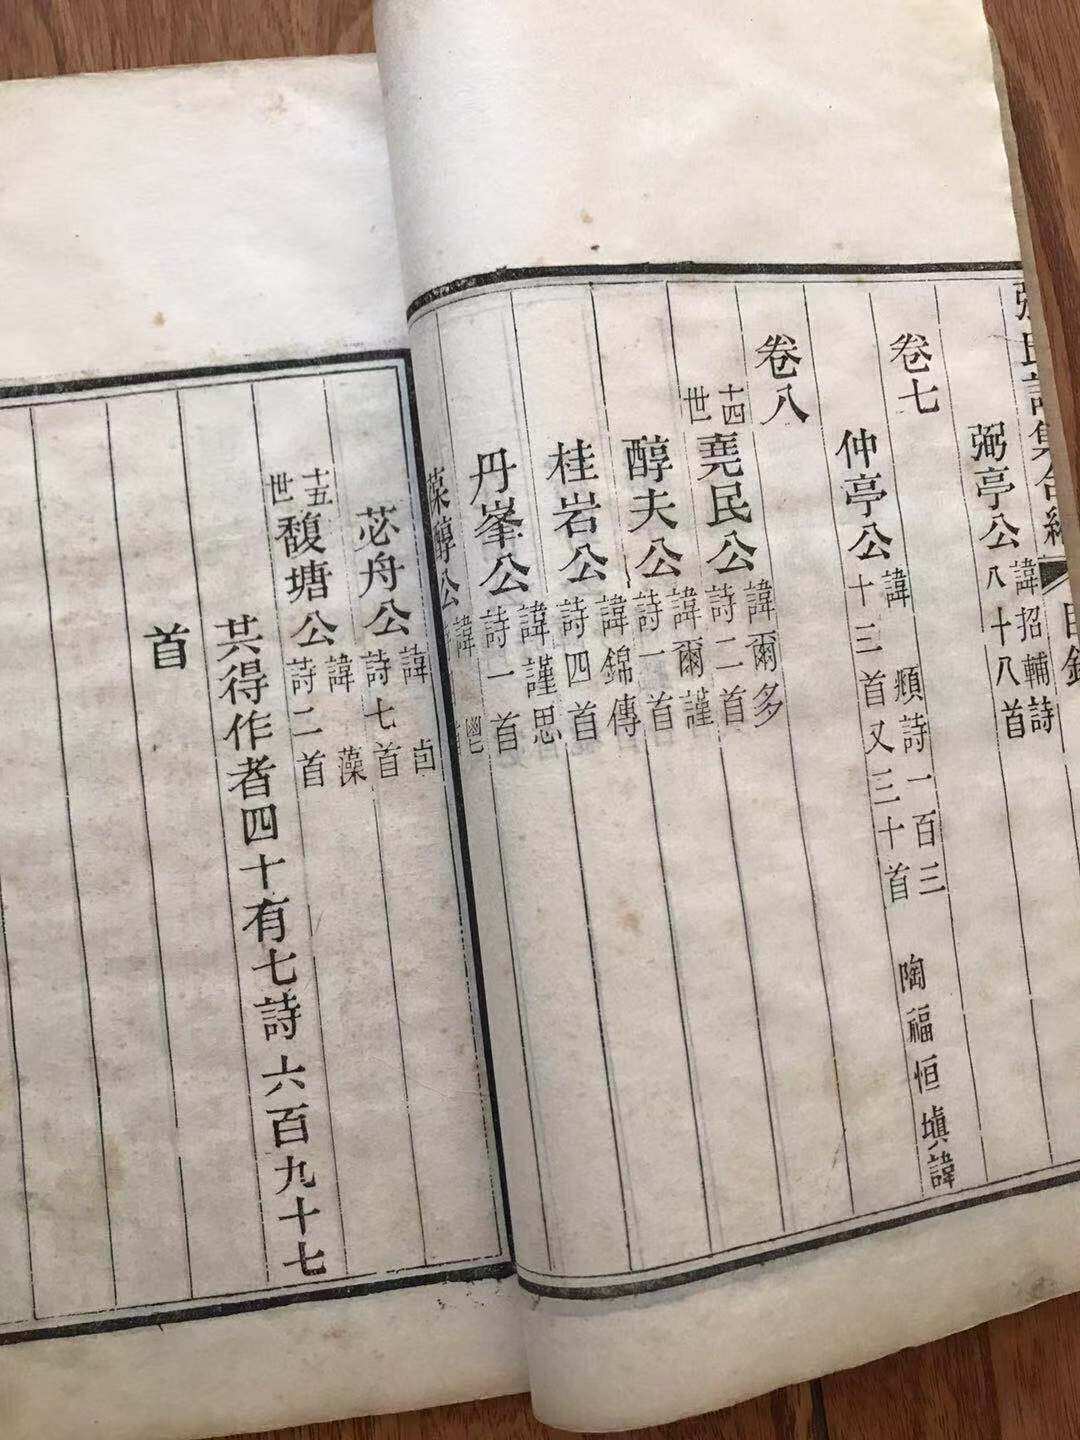 張氏詩集合編 目錄
弼亭公 諱招輔詩
八十八首
卷七
仲亭公 諱 頫詩一百三
十三首又三十首 陶福恒填諱
卷八
十四世 堯民公 諱爾多
詩二首
醇夫公 諱爾謹
詩一首
桂岩公 諱錦傳
詩四首
丹峯公 諱謹思
詩一首
醇公 諱
苾舟公 諱 卣
詩七首
十五世 馥塘公 諱 藻
詩二首
共得作者四十有七詩六百九十七
首